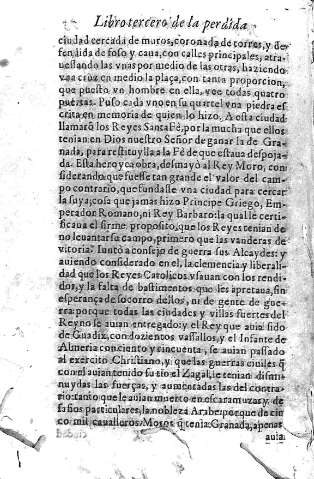 Libro tercero de la perdida
ciudad cercada de muros, coronada de torres, y de
fendida de foso y caua, con calles principales, atra-
uessadas las vnas por medio de las otras, haziendo
vna cruz en medio la plaça, con tanta proporcion,
que puesto vn hombre en ella, vee todas quatro
puertas. Puso cada vno en su quartel vna piedra es
crita en memoria de quien lo hizo. A esta ciudad
llamarõ los Reyes Santa Fè, por la mucha que ellos
tenian en Dios nuestro Señor de ganar la de Gra-
nada, para restituylla a la Fè de que estaua despoja-
da. Esta heroyca obra, desmayò al Rey Moro, con
siderando que fuesse tan grande el valor del cam-
po contrario, que fundasse vna ciudad para cercar
la suya, cosa que jamas hizo Principe Griego, Em-
perador Romano, ni Rey Barbaro: la qual le certi-
ficaua el firme proposito, que los Reyes tenian de
no leuantar su campo, primero que las vanderas de
vitoria. Iuntò a consejo de guerra sus Alcaydes: y
auiendo considerado en el, la clemencia y liberali-
dad que los Reyes Catolicos vsauan con los rendi-
dos, y la falta de bastimentos que les apretaua, sin
esperança de socorro dellos, ni de gente de gue-
rra: porque todas las ciudades y villas fuertes del
Reyno se auian entregado: y el Rey que auia sido
de Guadix, con dozientos vassallos, y el Infante de
Almeria con ciento y cincuenta, se auian passado
al exercito Christiano, y que las guerras ciuiles q̃
con el auian tenido su tio el Zagal, le tenian dismi
nuydas las fuerças, y aumentadas las del contra-
rio: tanto que le auian muerto en escaramuzas, y de
safios particulares, la nobleza Arabe: porque de cin
co mil caualleros Moros q̃ tenia Granada, apenas
auia